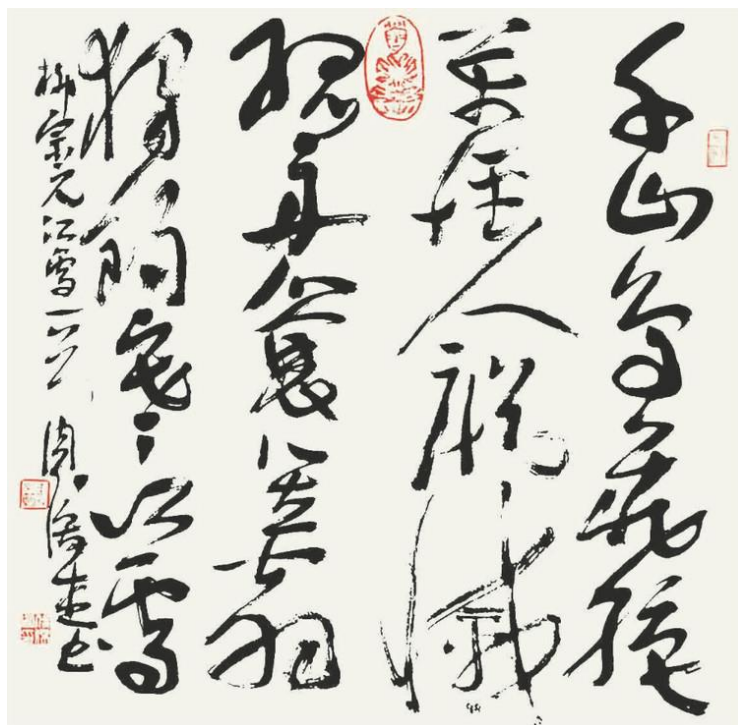 千山鳥飛絕
萬徑人蹤滅
孤舟蓑笠翁
獨釣寒江雪
柳宗元江雪一首 周俊杰書